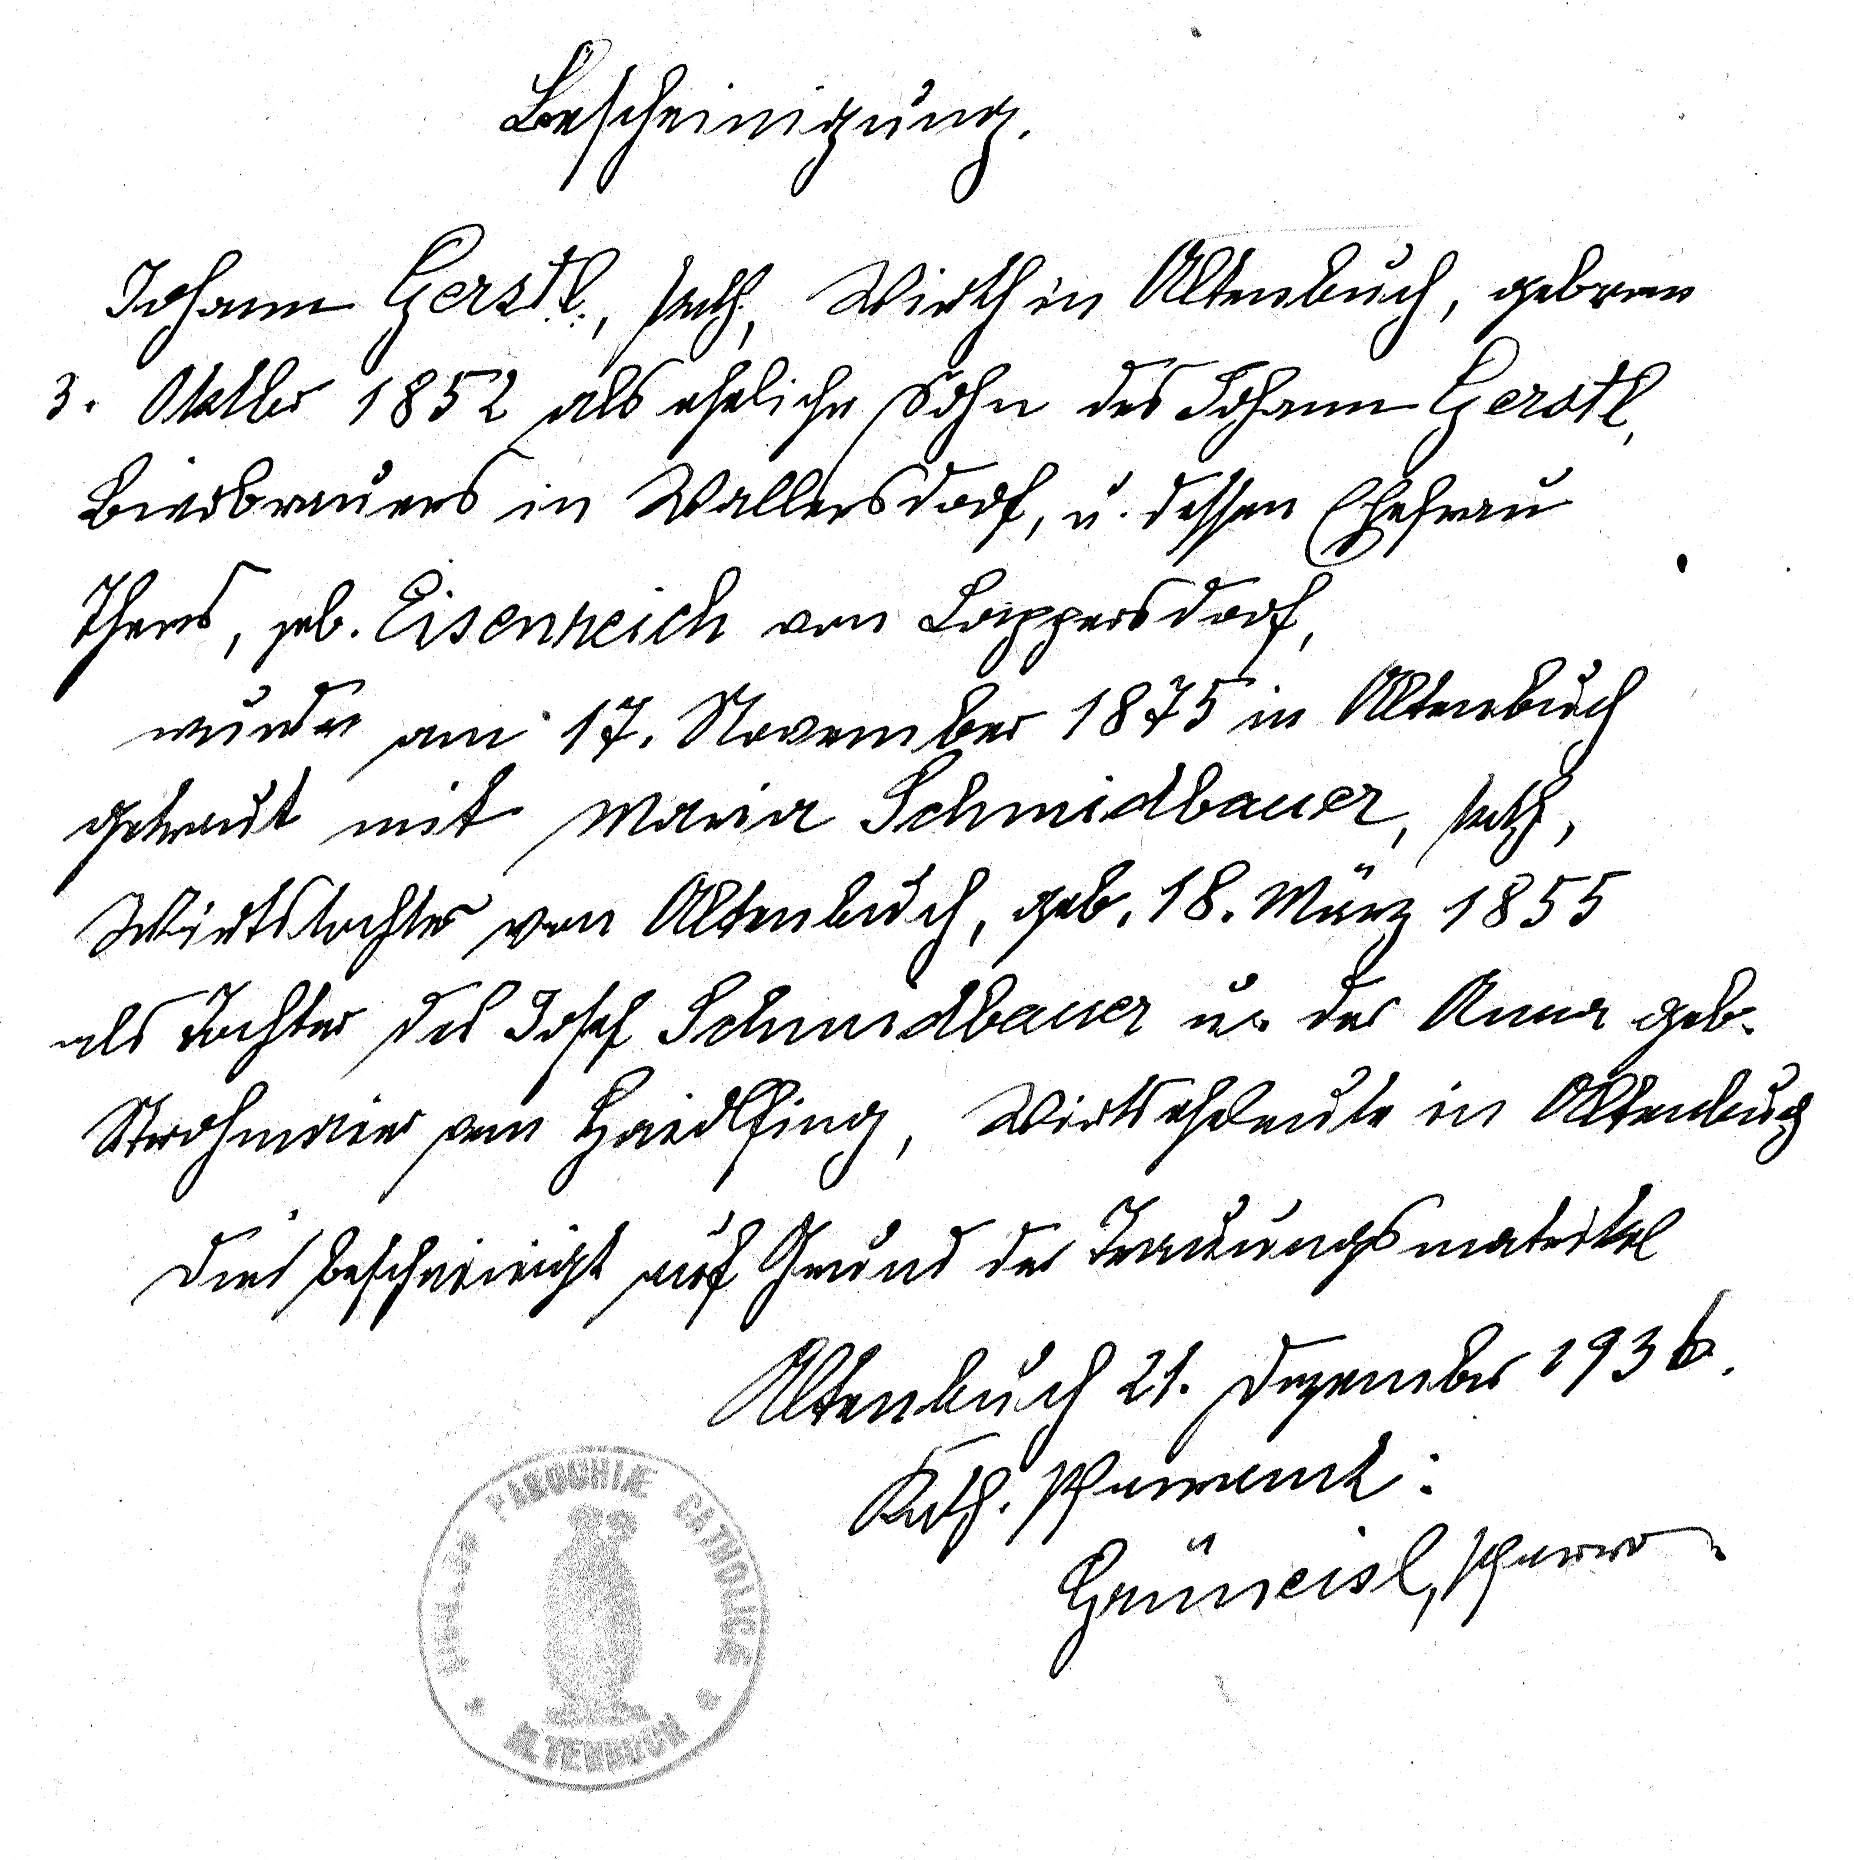 Bescheinigung.
Johann Gerstl, kath, Wirth in Altenbuch, geboren
3. Oktober 1852 als ehelicher Sohn des Johann Gerstl,
Bierbrauers in Wallersdorf, u. dessen Ehefrau
Theres, geb. Eisenreich von Loippersdorf,
wurde am 17. November 1875 in Altenbuch
getraut mit Maria Schmidbauer, kath,
Wirtstochter von Altenbuch, geb. 18. März 1855
als Tochter des Josef Schmidbauer u. der Anna geb.
Strohmaier von Haidlfing, Wirtseheleute in Altenbuch
Dies bescheinigt auf Grund der Trauungsmatrikel
Altenbuch 21. Dezember 1936.
Kath. Pfarramt:
Grüneisl, Pfarrer
PAROCHIÆ CATHOLICÆ
ALTENBUCH